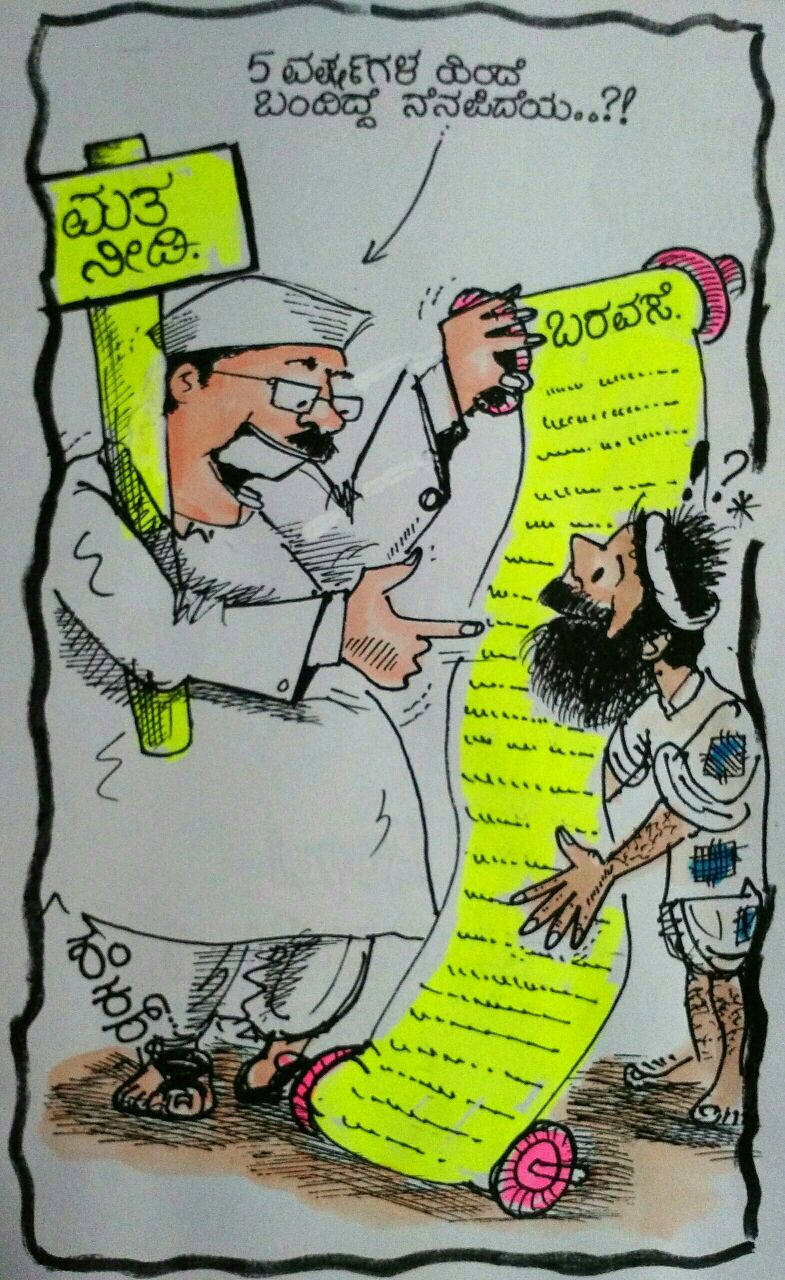 5 ವರ್ಷಗಳ ಹಿಂದೆ
ಬಂದಿದ್ದೆ ನೆನಪಿದೆಯ..?!
ಮತ
ನೀಡಿ.
ಬರವಸೆ.
!?*